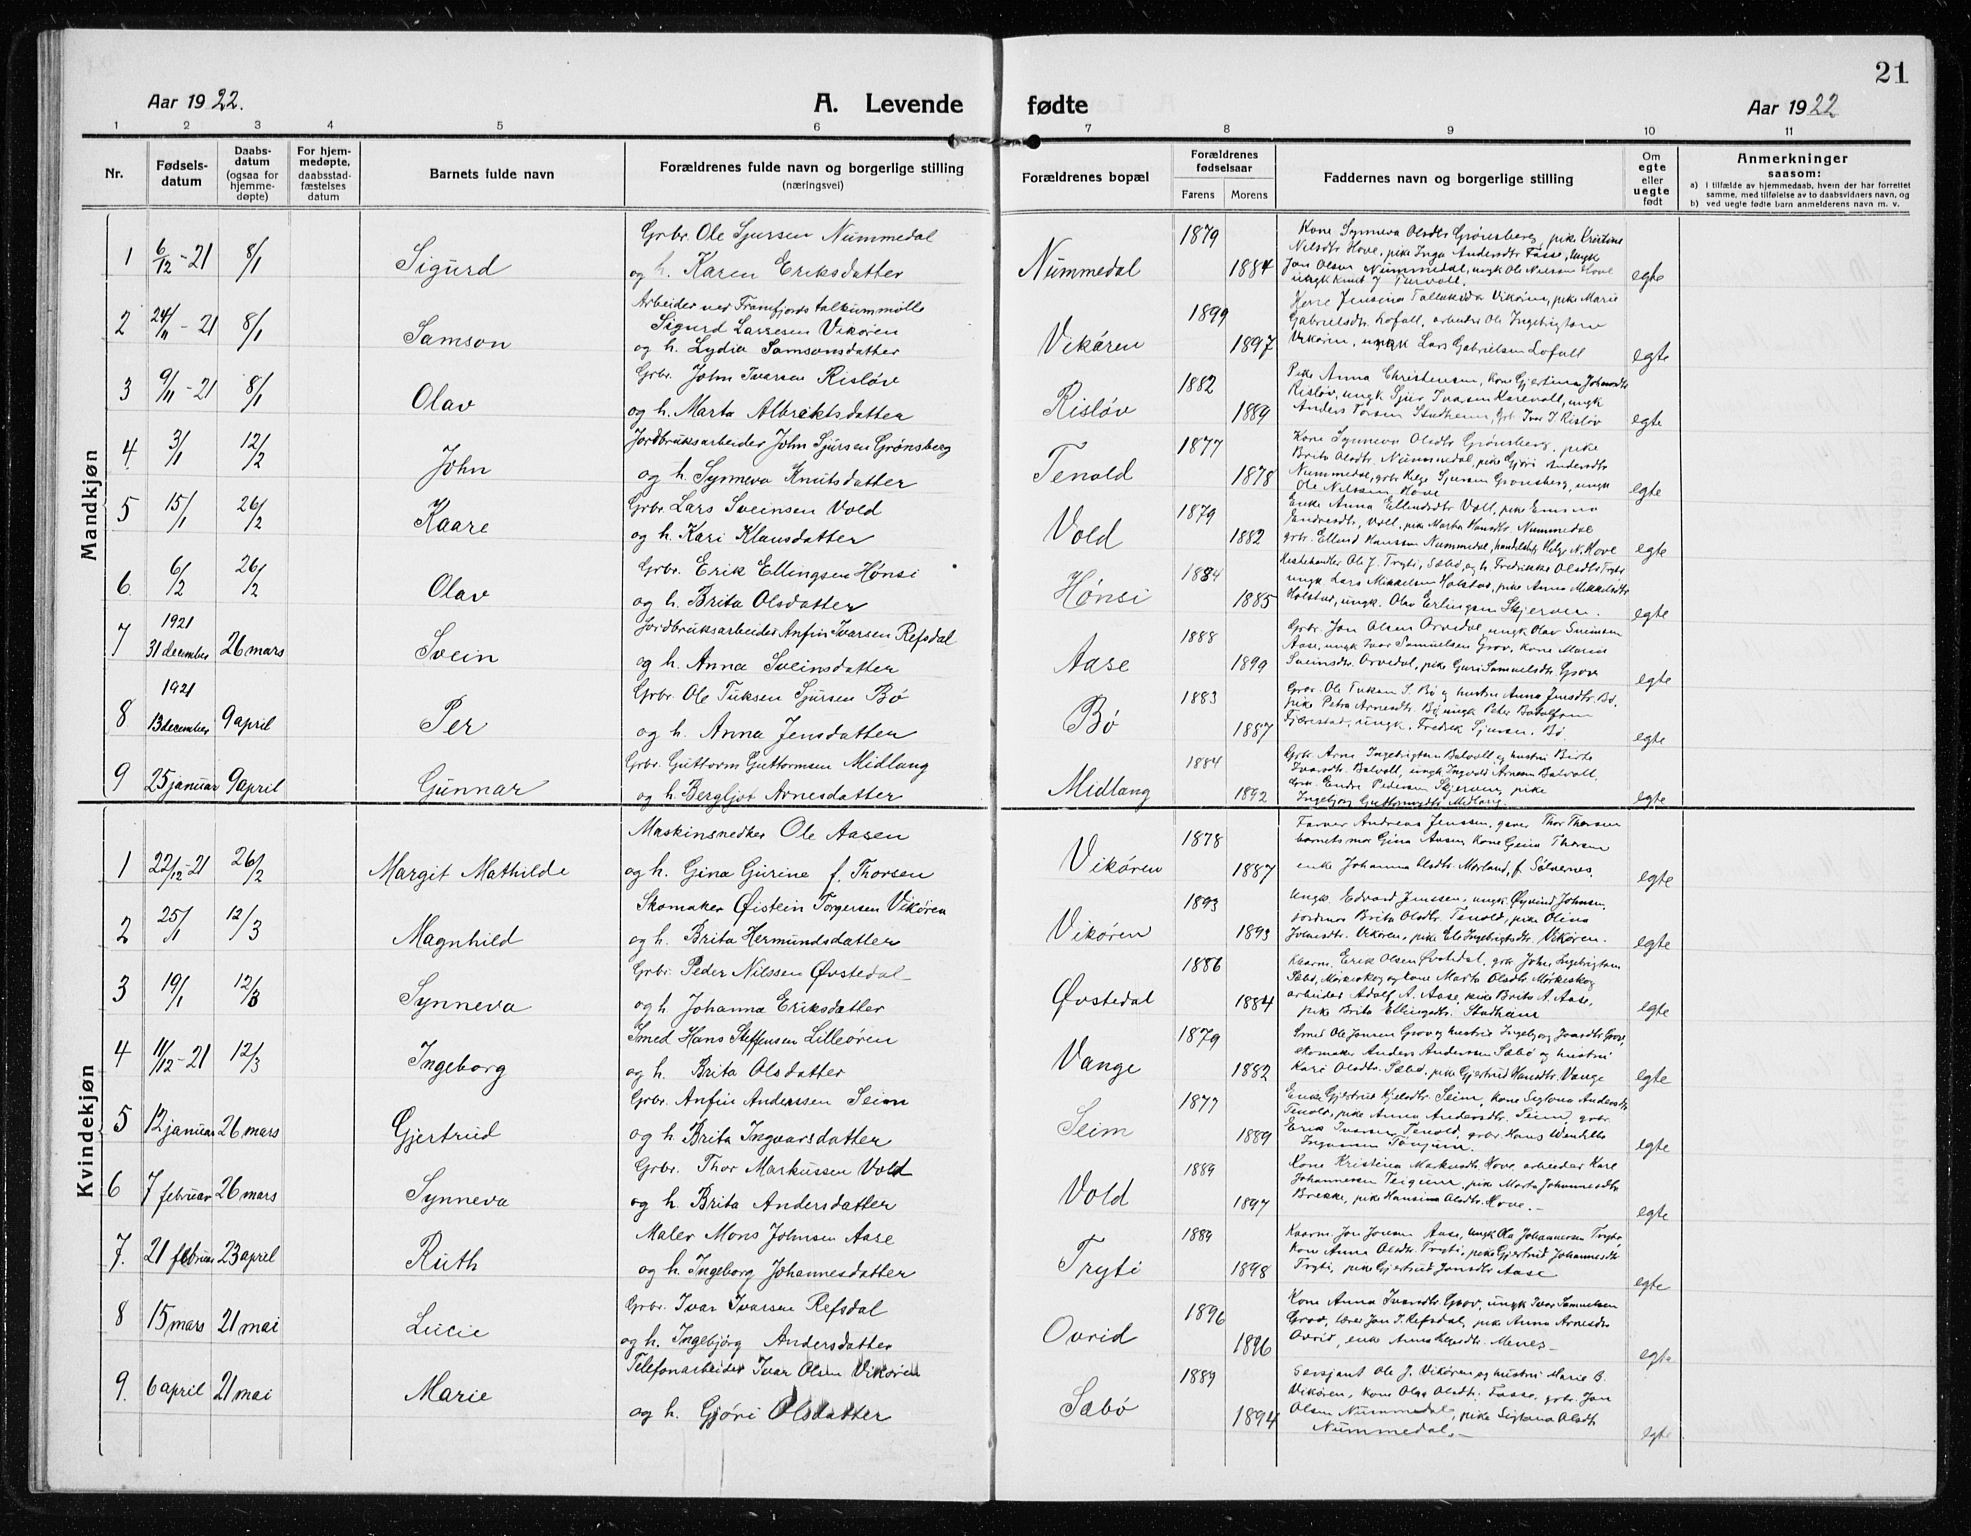 21
Aar 1922.
A. Levende fødte
Aar 1922
1 2 3 4 5 6 7 8 9 10 11
Nr.
Fødsels-
datum
Daabs-
datum
(ogsaa for
hjemme-
døpte)
For hjem-
medøpte,
daabsstad-
fæstelses
datum
Barnets fulde navn
Forældrenes fulde navn og borgerlige stilling
(næringsvei)
Forældrenes bopæl
Forældrenes
fødselsaar
Farens Morens
Faddernes navn og borgerlige stilling
Om
egte
eller
uegte
født
Anmerkninger
saasom:
a) I tilfælde av hjemmedaab, hvem der har forrettet
samme, med tilføielse av to daabsvidners navn, og
b) ved uegte fødte barn anmelderens navn m. v.
Mandkjøn
1 6/12-21 8/1 Sigurd
Grbr. Ole Sjursen Nummedal
og h. Karen Eriksdatter
Nummedal 1879 1884
Kone Synneva Olsdtr Grønsberg, pike Kristine
Nilsdtr Hove, pike Inga Andersdtr Fosse, ungk
Jon Olsen Nummedal, ungk Ole Nilssen Hove
ungk Knut J Turvoll.
egte
2 24/11-21 8/1 Samson
Arbeider ved Framfjords talkummølle
Sigurd Larssen Vikøren
og h. Lydia Samsonsdatter
Vikøren 1899 1897
Kone Jensina Vikøren, pike Marie
Gabrielsdtr. Lofall, arbeider Ole Ingebrigtsen
Vikøren, ungk Lars Gabrielsen Lofall
egte
3 9/11-21 8/1 Olav
Grbr. John Ivarsen Risløv
og h. Marta Albrektsdatter
Risløv 1882 1889
Pike Anna Christensen, kone Gjertina Johansdtr
Risløv, ungk Sjur Ivarsen Karevoll, ungk
Anders Torsen Stadheim, Grb. Ivar J. Risløv
egte
4. 3/1 12/2 John
Jordbruksarbeider John Sjursen Grønsberg
og h. Synneva Knutsdatter
Tenold 1877 1878
Kone Synneva Olsdtr Grønsberg, pike
Brita Olsdtr. Nummedal, pike Gjøri Andersdtr
Nummedal, grbr Helge Sjursen Grønsberg, ungk
Ole Nilssen Hove
egte
5 15/1 26/2 Kaare
Grbr Lars Sveinsen Vold
og h. Kari Klausdatter
Vold 1879 1882
Enke Anna Ellendsdtr Voll, pike
Endresdtr, Voll, pike Marta Hansdtr Nummedal
grbr. Ellend Hanssen Nummedal, handelsbtj Helge N. Hove
egte
6 6/2 26/2 Olav
Grbr. Erik Ellingsen Hønsi
og h. Brita Olsdatter
Hønsi 1884 1885
Hestehandler Ole J. Tryti, Sæbø, og h. Fredrikke Olsdtr Tryti
ungk Lars Mikkelsen Holstad, pike Anna Mikkelsdtr
Holstad, ungk. Olav Erlingsen Skjerven.
egte
7 1921
31 december 26 mars Svein
Jordbruksarbeider Anfin Ivarsen Refsdal
og h. Anna Sveinsdatter
Aase 1888 1890
Grbr. Jon Olsen Orvedal, ungk Olav Sveinsen
Aase, ungk Ivar Samuelsen Grov, kone Marie
Sveinsdtr. Orvedal, pike Guri Samuelsdtr. Grov
egte
8 1921
13 december 9 april Per
Grbr. Ole Tuksen Sjursen Bø
og h. Anna Jensdatter
Bø 1883 1887
Grbr. Ole Tuksen S. Bø og hustru Anna Jensdtr. Bø,
pike Petra Arnesdtr. Bø, ungk Peter Botolfsen
Fjærestad, ungk. Fredrik Sjursen. Bø
egte
9 25 januar 9 april Gunnar
Grbr. Guttorm Guttormsen Midlang
og h. Bergljot Arnesdatter
Midlang 1884 1892
Grbr. Arne Ingebrigtsen Balvoll og hustru Birte
Ivarsdtr. Balvoll, ungk Ingvald Arnesen Balvoll.
Endre Pedersen Skjerven, pike
Ingebjørg Guttormsdtr Midlang.
egte
Kvindekjøn
1 22/12-21 26/2 Margit Mathilde
Maskinsnedker Ole Aasen
og h. Gina Gurine f. Thorsen
Vikøren 1878 1887
Farver Andreas Jenssen, garver Thor Thorsen
barnets mor Gina Aasen, kone Thorsen
enke Johanna Olsdtr. Morland, f. Solvernes.
egte
2 25/1 12/3 Magnhild
Skomaker Øistein Torgersen Vikøren
og h. Brita Hermundsdatter
Vikøren 1893 1893
Ungk. Edvard Jenssen, ungk Øyvind Johnsen,
Jordmor Brita Olsdtr. Tenold, pike Olina
Johnsdtr. Vikøren, pike Eli Ingebrigtsdtr. Vikøren.
egte
3 19/1 12/3 Synneva
Grbr. Peder Nilssen Øvstedal
og h. Johanna Eriksdatter
Øvstedal 1886 1884
Kaarm. Erik Olsen Øvstedal, grbr John Ingebrigtsen
Sæbø, Mørkeskog og kone Marta Olsdtr Mørkeskog
arbeider Adolf A. Aase, pike Brita A. Aase,
pike Brita Ellingsdtr. Stadheim
egte
4 11/12-21 12/3 Ingeborg
Smed Hans Steffensen Lilleøren
og h. Brita Olsdatter
Vange 1879 1882
Smed Ole Jonsen Grov og hustru Ingebjørg Jonsdtr Grov,
skomaker Anders Anderssen Sæbø og hustru
Kari Olsdtr. Sæbø, pike Gjertrud Hansdtr. Vange
egte
5 12 januar 26 mars Gjertrud
Grbr. Anfin Anderssen Seim
og h. Brita Ingvarsdatter
Seim 1877 1889
Enke Gjertrud Seim, kone Sigtona Andersdtr
Tenold, pike Anna Andersdtr. Seim, grbr.
Erik Ivarsen Tenold, grbr. Hans
Ingvarsen Tønjum.
egte
6 7 februar 26 mars Synneva
Grbr. Thor Markussen Vold
og h. Brita Andersdatter
Vold 1889 1897
Kone Kristina Markusdtr. Hove, arbeider Karl
Johannessen Teigum, pike Marta Johannesdtr
Brekke, pike Hansina Olsdtr. Hove.-
egte
7. 21 februar 23 april Ruth
Maler Mons Johnsen Aase
og h. Ingeborg Johannesdatter
Tryti 1889 1898
Kaarm. Jon Jonsen Aase, ungk Ola Johannesen Tryti,
kone Anna Olsdtr. Tryti, pike Gjertrud Johannesdtr
Tryti, pike Gjertrud Jonsdtr Aase
egte
8 15 mars 21 mai Lucie
Grbr. Ivar Ivarsen Refsdal
og h. Ingebjørg Andersdatter
Ovrid 1896 1896
Kone Anna Ivarsdtr. Grov, ungk Ivar Samuelsen
Grov, lærer Jon I. Refsdal, pike Anna Arnesdtr
Ovrid, enke Anna Menes-
egte
9. 6 april 21 mai Marie
Telefonarbeider Ivar Olsen Vikøren
og h. Gjøri Olsdatter
Sæbø 1889 1894
Sersjant Ole J. Vikøren og hustru Marie B.
Vikøren, kone Olga Olsdtr. Fosse, grbr. Jon
Olsen Nummedal, pike Sigtona Olsdtr
Nummedal.-
egte